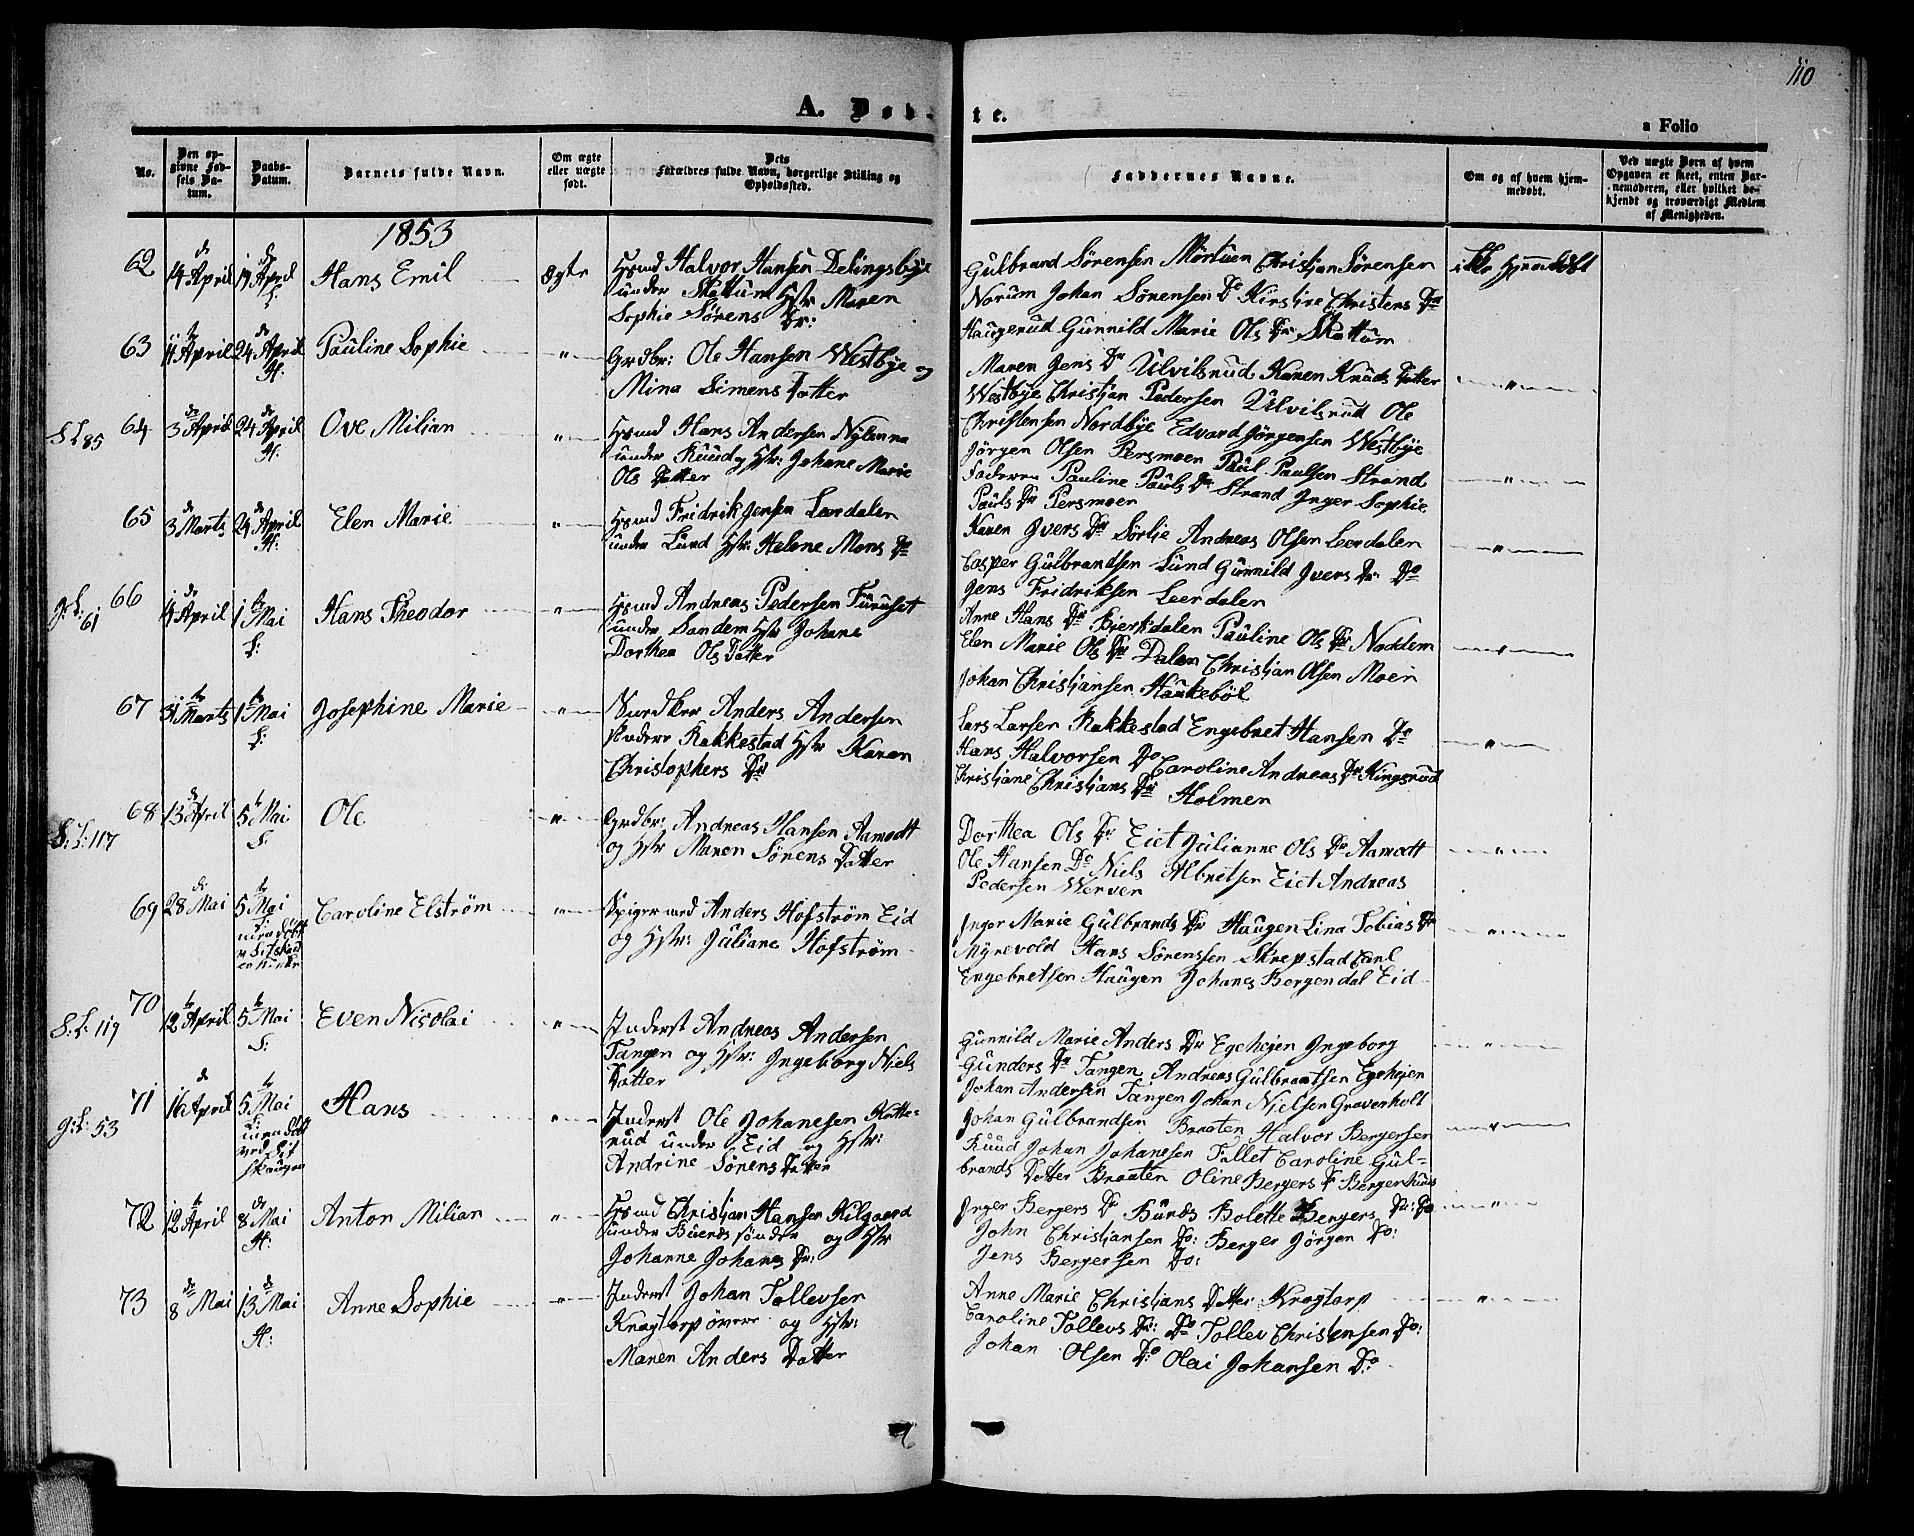 110
A. Døb-
te.
a Folio
No.
Den op-
givne Fød-
sels Da-
tum.
Daabs-
Datum.
Barnets fulde Navn.
Om ægte
eller uægte
født.
Dets
Forældres fulde Navn, borgerlige Stilling og
Opholdssted.
Faddernes Navne.
Om og af hvem hjem-
medøbt.
Ved uægte Børn af hvem
Opgaven er skeet, enten Bar-
nemoderen, eller hvilket be-
kjendt og troværdigt Medlem
af Menigheden.
1853
62
14 April
19 April
Hans Emil
Ægte
Hsmd Halvor Hansen Delingsbye
under Skattum Hstr Maren
Sophie Sørens Dr:
Gulbrand Sørensen Mørtuen Christjan Sørensen
Norum Johan Sørensen Do Kirstine Christens Dr
Haugerud Gunnild Marie Ols Dr Skattum
ikke hjemdøbt
63
11 April
24 April
H:
Pauline Sophie
"
Grdbr: Ole Hansen Westbye og
Mina Simens Datter
Maren Jens Dr Ulvilsrud Karen Knuds Datter
Westbye Christjan Pedersen Ulvilsrud Ole
Christensen Nordbye Edvard Jørgensen Westbye
"
S L 85
64
3 April
24 April
H:
Ove Milian
"
Hsmd Hans Andersen Nylenna
under Ruud og Hstr: Johane Marie
Ols Datter
Jørgen Olsen Persmoen Paul Paulsen Strand
Faderen Pauline Pauls Dr Strand Inger Sophie
Pauls Dr Persmoen
"
65
3 Marts
24 April
H:
Elen Marie
"
Hsmd Fridrik Jensen Leerdalen
under Lund Hstr: Helene Mons Dr
Karen Ivers Dr Sørlie Andreas Olsen Leerdalen
Casper Gulbrandsen Lund Gunnild Ivers Dr: Do
Jens Fridriksen Leerdalen
"
g: L: 61
66
4 April
1 Mai
Hans Theodor
"
Hsmd Andreas Pedersen Furuset
under Sandem Hstr Johane
Dorthea Ols Datter
Anne Hans Dr Bierkdalen Pauline Ols Dr Noddem
Elen Marie Ols Dr Dalen Christjan Olsen Moen
Johan Christjansen Haukebøl
"
67
31 Marts
1 Mai
Josephine Marie
"
Anders Andersen
Rakkestad Hstr Karen
Christophers Dr
Lars Larsen Rakkestad Engebret Hansen Do
Hans Halvorsen Do Caroline Andreas Dr Kingsrud
Christjane Christjans Dr Holmen
"
S: L: 117
68
13 April
5 Mai
S:
Ole
"
Grdbr: Andreas Hansen Aamodt
og Hstr Maren Sørens Datter
Dorthea Ols Dr Eict Julianne Ols Dr Aamodt
Ole Hansen Do Niels Albritsen Eict Andreas
Pedersen Werven
"
69
28 Mai
5 Mai
Caroline Elstrøm
"
Spigersmed Anders Hofstrøm Eid
og Hstr: Juliane Hofstrøm
Inger Marie Gulbrands Dr Haugen Lina Tobias Dr
Myrevold Hans Sørenssen Skrepstad Carl
Engebretsen Haugen Johanes Bergendal Eid
"
S: L: 119
70
12 April
5 Mai
S:
Even Nicolai
"
Inderst Andreas Andersen
Tangen og Hstr: Ingeborg Niels
Datter
Gunnild Marie Anders Dr Egehejen Ingeborg
Gunders Dr Tangen Andreas Gulbrantsen Egehejen
Johan Andersen Tangen Johan Nielsen Graverholt
"
g: L: 53
71
16 April
5 Mai
Hans
"
Inderst Ole Johanesen Katte-
rud under Eid og Hstr:
Andrine Sørens Datter
Johan Gulbrandsen Braaten Halvor Bergersen
Ruud Johan Johanesen Tallet Caroline Gul-
brands Datter Braaten Oline Bergers Dr Bergenhuus
"
72
12 April
8 Mai
H:
Anton Milian
"
Hsmd Christjan Hansen Kilgaard
under Buerds søndre og Hstr
Johanne Johans Dr:
Inger Bergers Dr Buerds Bolette Bergers Dr: Do
John Christjansen Do: Berger Jørgen Do:
Jens Bergersen Do:
"
73
8 Mai
13 Mai
H:
Anne Sophie
"
Inderst Johan Tollevsen
Kragtorp øvere og Hstr:
Maren Anders Datter
Anne Marie Christjans Datter Kragtorp
Caroline Tollevs Dr: Do Tollev Christensen Do:
Johan Olsen Do Olai Johansen Do
"